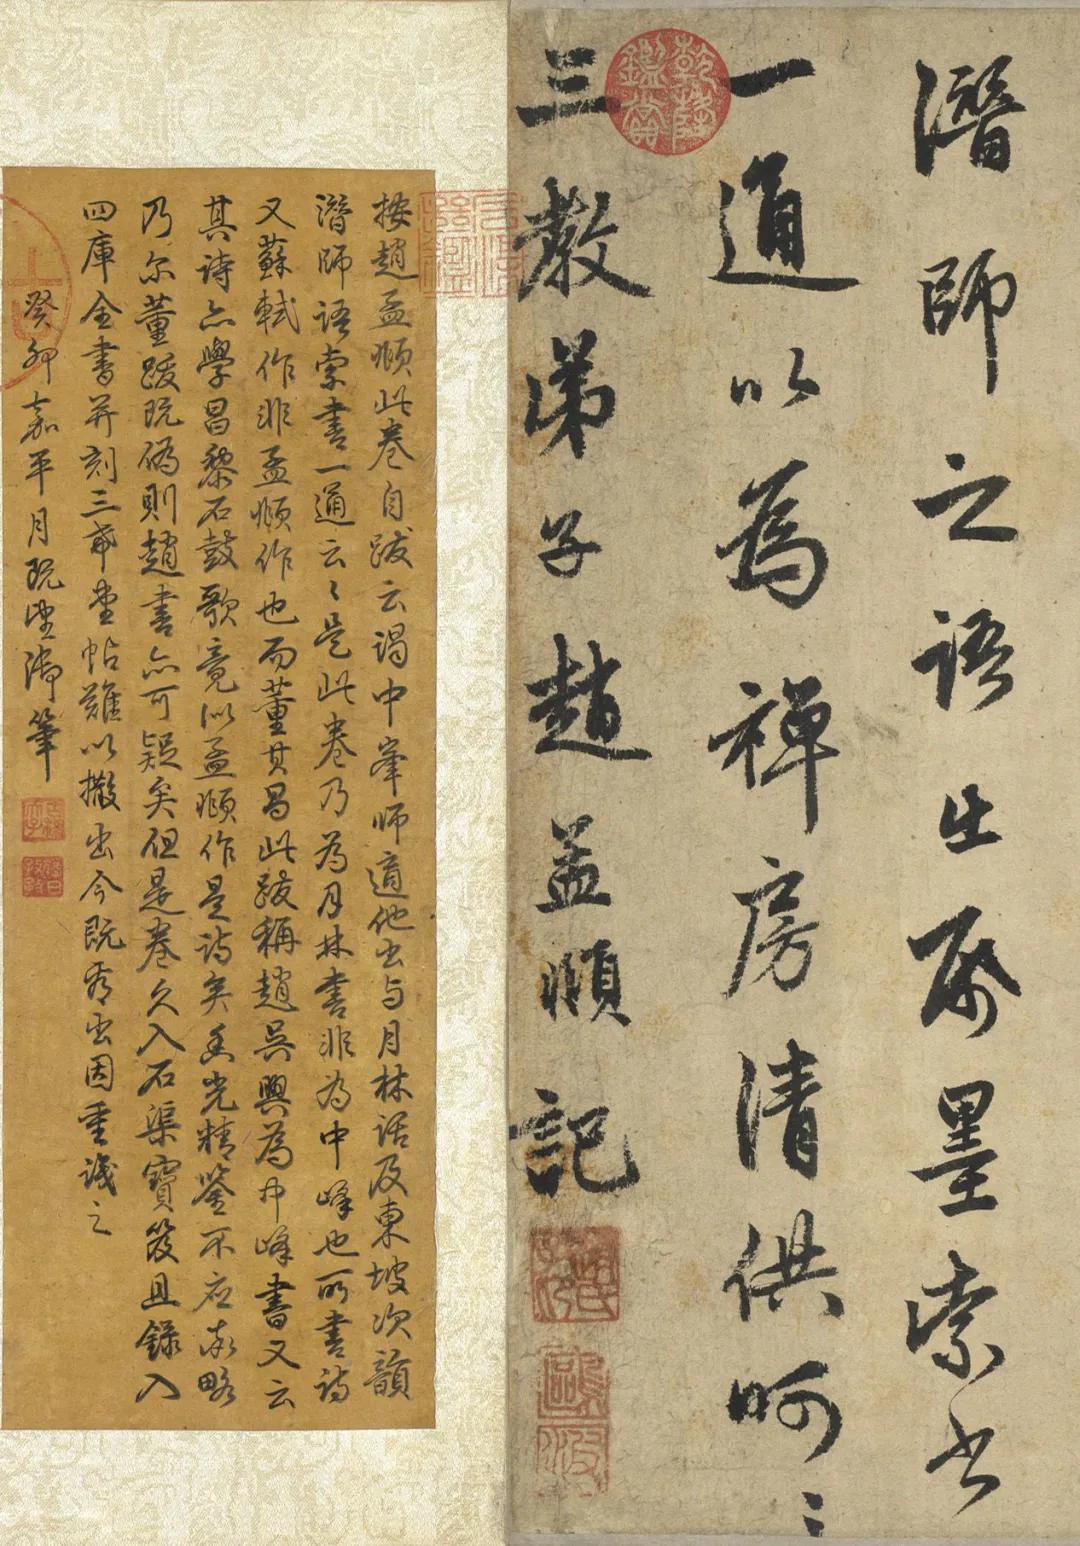 潛師之語出紙墨索書
一通以為禪房清供呵〻
三教弟子趙孟頫記
乾隆鑑賞
按趙孟頫此卷自跋云謁中峯師適他出与月林話及東坡次韻
潛師語索書一通云〻是此卷乃為月林書非為中峰也所書詩
又蘇軾作非孟頫作也而董其昌此跋稱趙吳興為中峰書又云
其詩亦學昌黎石鼓歌竟似孟頫作是詩矣香光精鑒不应率略
乃尔董跋既偽則趙書亦可疑矣但是卷久入石渠寶笈且錄入
四庫全書并刻三希堂帖難以撤出今既看出因重識之
癸卯嘉平月既望御筆